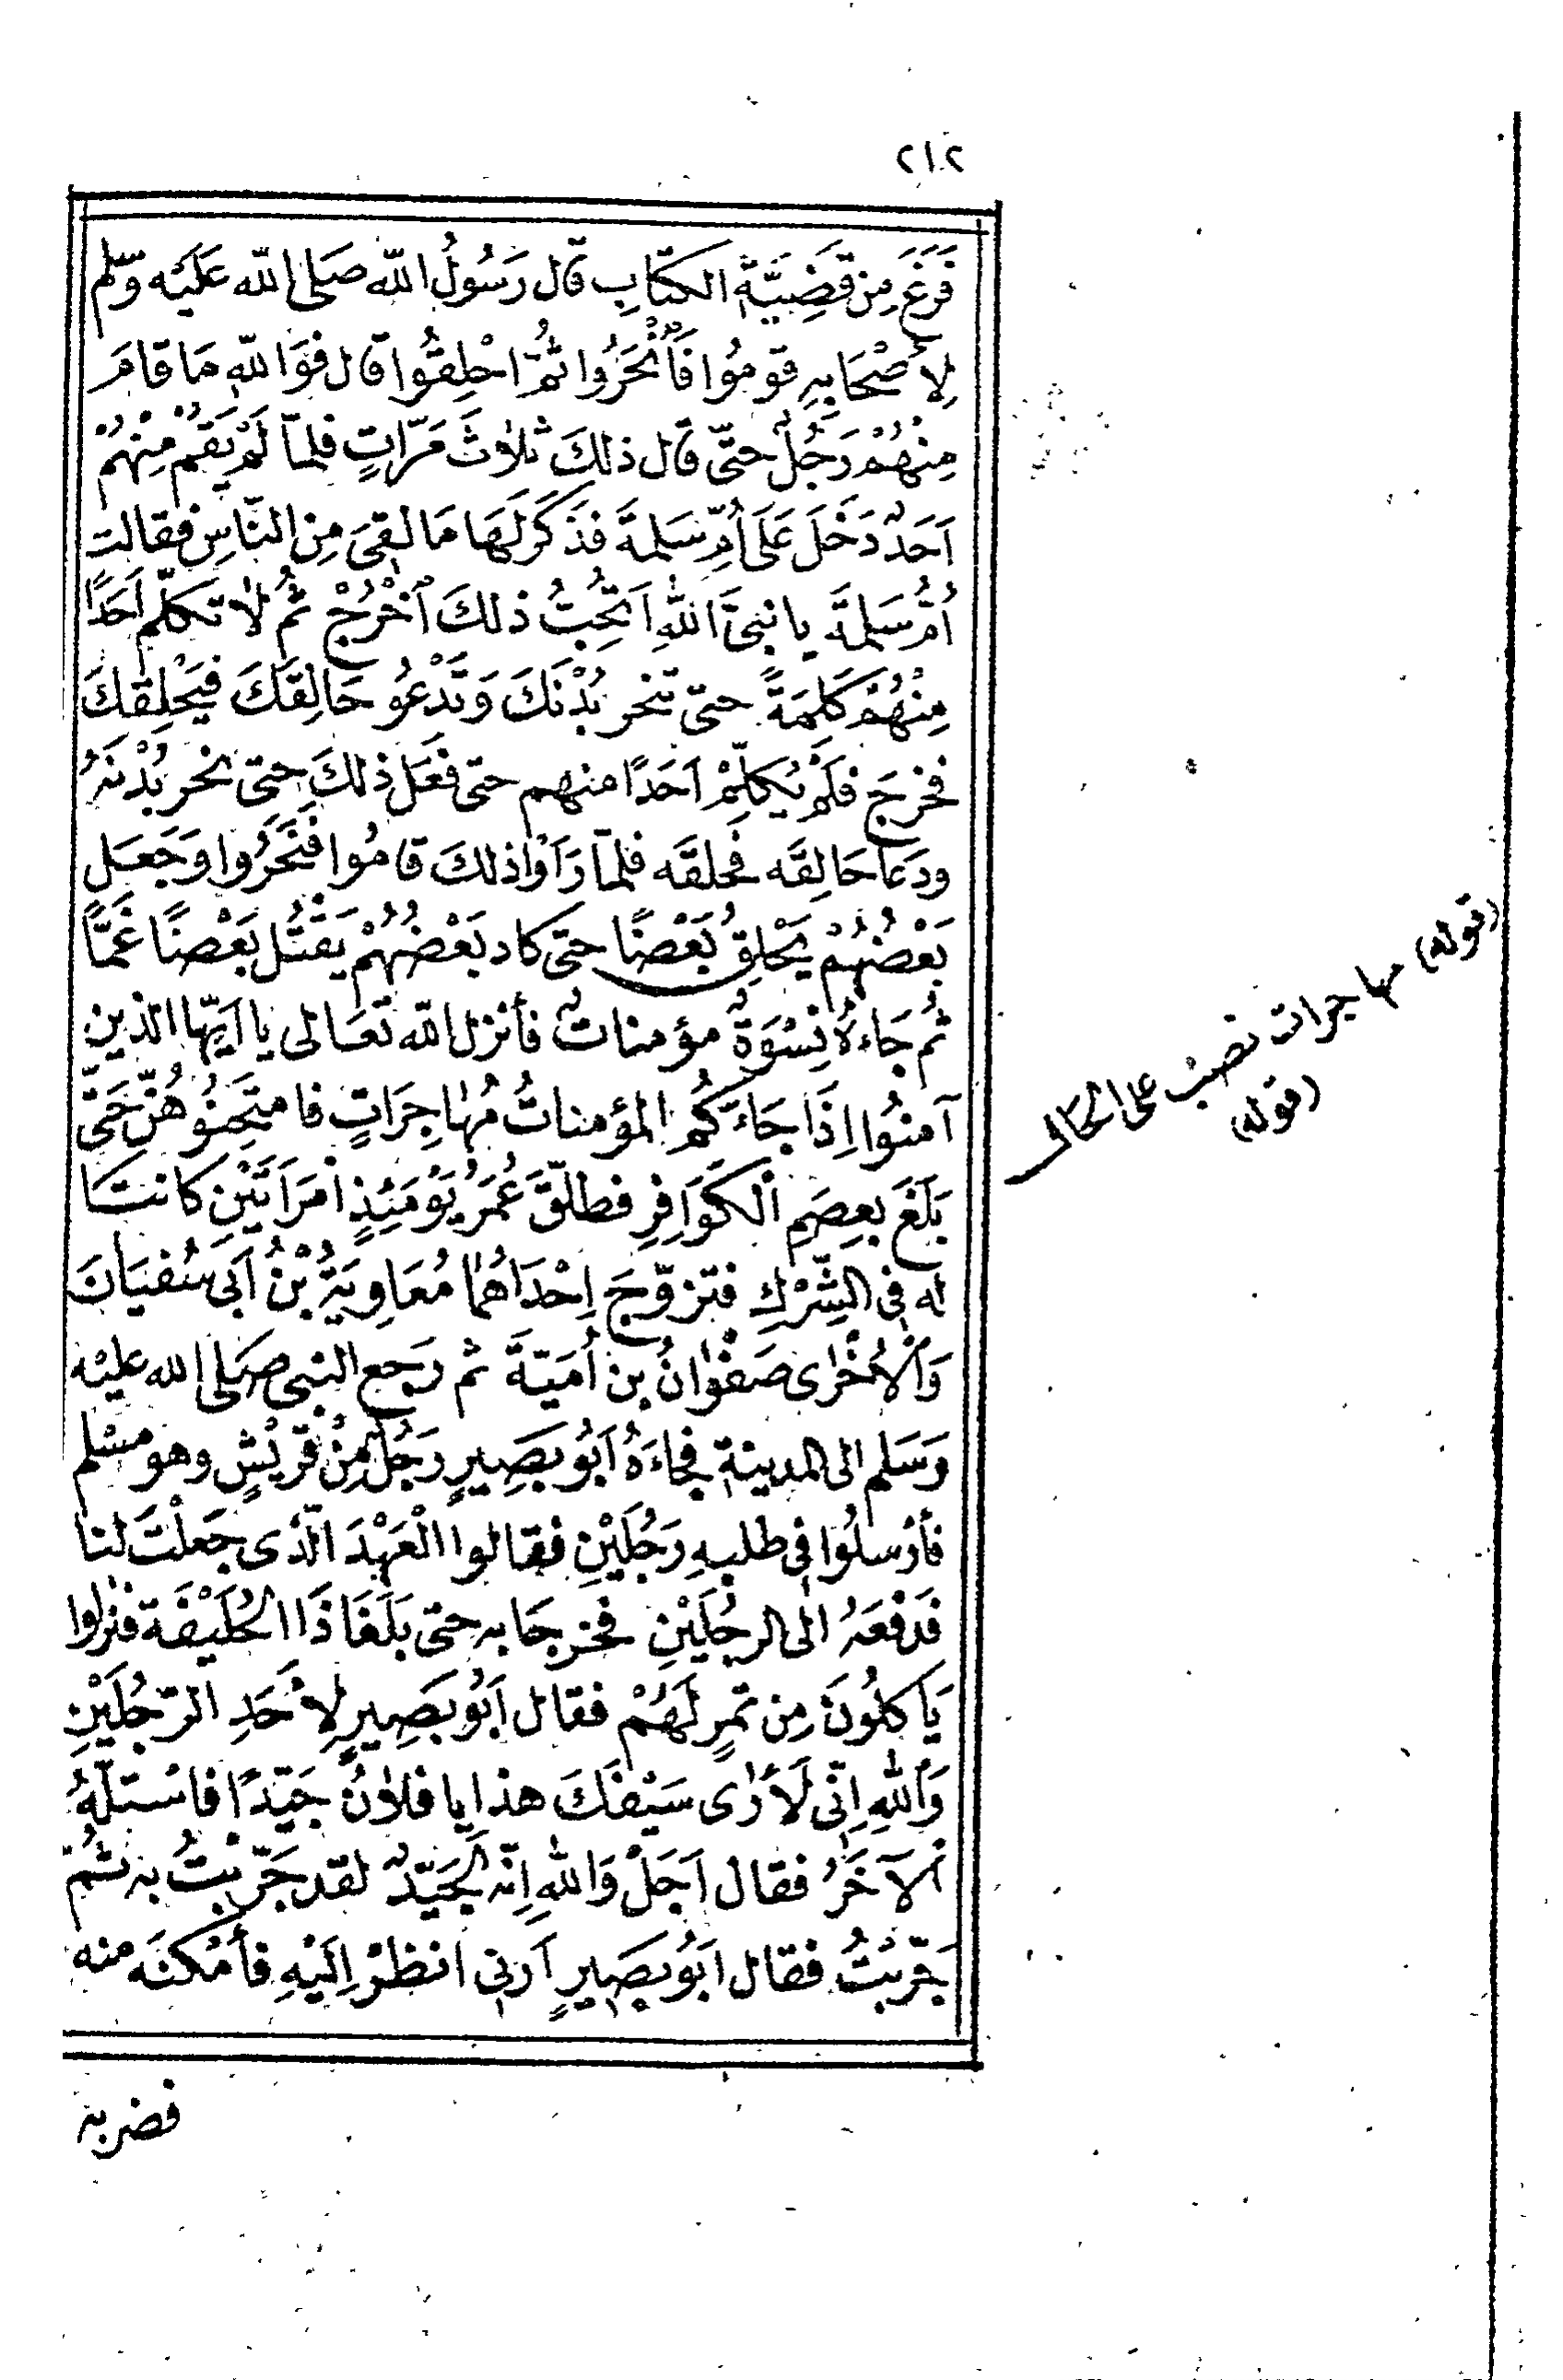 ٢١٢
فَرَغَ مِنْ قَضِيَّةِ الكتَابِ قَال رَسُولُ الله صَلى الله عَلَيْه وسّلم
لِأَصْحَابِهِ قومُوا فَأنْحَرُوا ثُمَّ احْلِقُوا قَال فوَاللهِ مَا قامَ
مِنْهُمْ رَجُلٌ حتّى قَال ذلكَ ثلاثَ مَرّاتٍ فلمّا لَمْ يَقُمْ مِنْهُمْ
اَحَدٌ دَخَلَ عَلَى اُمِّ سَلمةَ فذَكَرَ لَهَا مَا لقِىَ مِن النّاسِ فقالت
اُمُّ سَلمةَ يا نبىَّ اللهِ اَتحِبُّ ذلكَ اُخْرُجْ ثُم لا تكلّم اَحَدًا
مِنْهُمْ كَلِمَةً حتى تنحر بُدْنَكَ وَتَدْعُوَ حَالِقَكَ فيَحْلِقكَ
فخرجَ فلَمْ يُكلِّمْ اَحَدًا منهم حتى فعَل ذلكَ حتى نحر بُدْنَهُ
ودَعا حَالِقَه فحلقَه فلمّا رَاَوْا ذلكَ قامُوا فنَحَرُوا وَجَعَل
بَعْضُهُمْ يَحْلِقُ بَعْضًا حتى كاد بَعْضُهُمْ يَقْتُل بَعْضًا غَمًّا
ثُم جَاءهُ نِسْوَةٌ مؤمناتٌ فأنزل الله تعَالى يا اَيّها الذين
آمنُوا اِذَا جَاءَكُم المؤمناتُ مُهاجِرَاتٍ فامتَحِنُوهُنّ حَتّى
بَلَغَ بعِصَمِ الْكوَافِرِ فطلّقَ عُمَرُ يَوْمَئِذٍ امْرَاَتَيْنِ كانتَا
له فى الشِّرْكِ فتزوّجَ اِحْدَاهُمَا مُعَاوِيَةُ بْنُ اَبى سُفيَانَ
وَالْاُخْرٰى صَفْوَانُ بن اُمَيّةَ ثم رَجع النبى صَلى الله عليْه
وَسَلم الى المدينةِ فجاءَهُ اَبُو بصِيرٍ رَجُلٌ مِنْ قُرَيْشٍ وهو مسْلم
فأرْسلُوا فى طلبهِ رَجُلَيْنِ فقالوا الْعَهْدَ الّذى جَعلْتَ لنا
فَدَفعَهُ الى الرجُلَيْنِ فخرجَا به حتى بَلَغَا ذَا الحُلَيْفَة فنزلوا
يَاكلُونَ مِن تمرٍ لَهُمْ فقال اَبُو بصِيرٍ لِأَحَدِ الرّجُلَيْنِ
وَاللهِ اِنّى لَأرٰى سَيْفكَ هذا يا فلانُ جَيّدًا فاسْتلّهُ
الْآخَرُ فقال اَجَلْ وَاللهِ اِنّه لجَيّدٌ لقد جَرّبْتُ به ثُمّ
جَرّبْتُ فقال اَبُو بصِيرٍ اَرِنى انظُرْ اِلَيْهِ فأمْكنَه منه
فضربه
(قوله) مهاجرات نصبٌ على الحَال
(قوله)